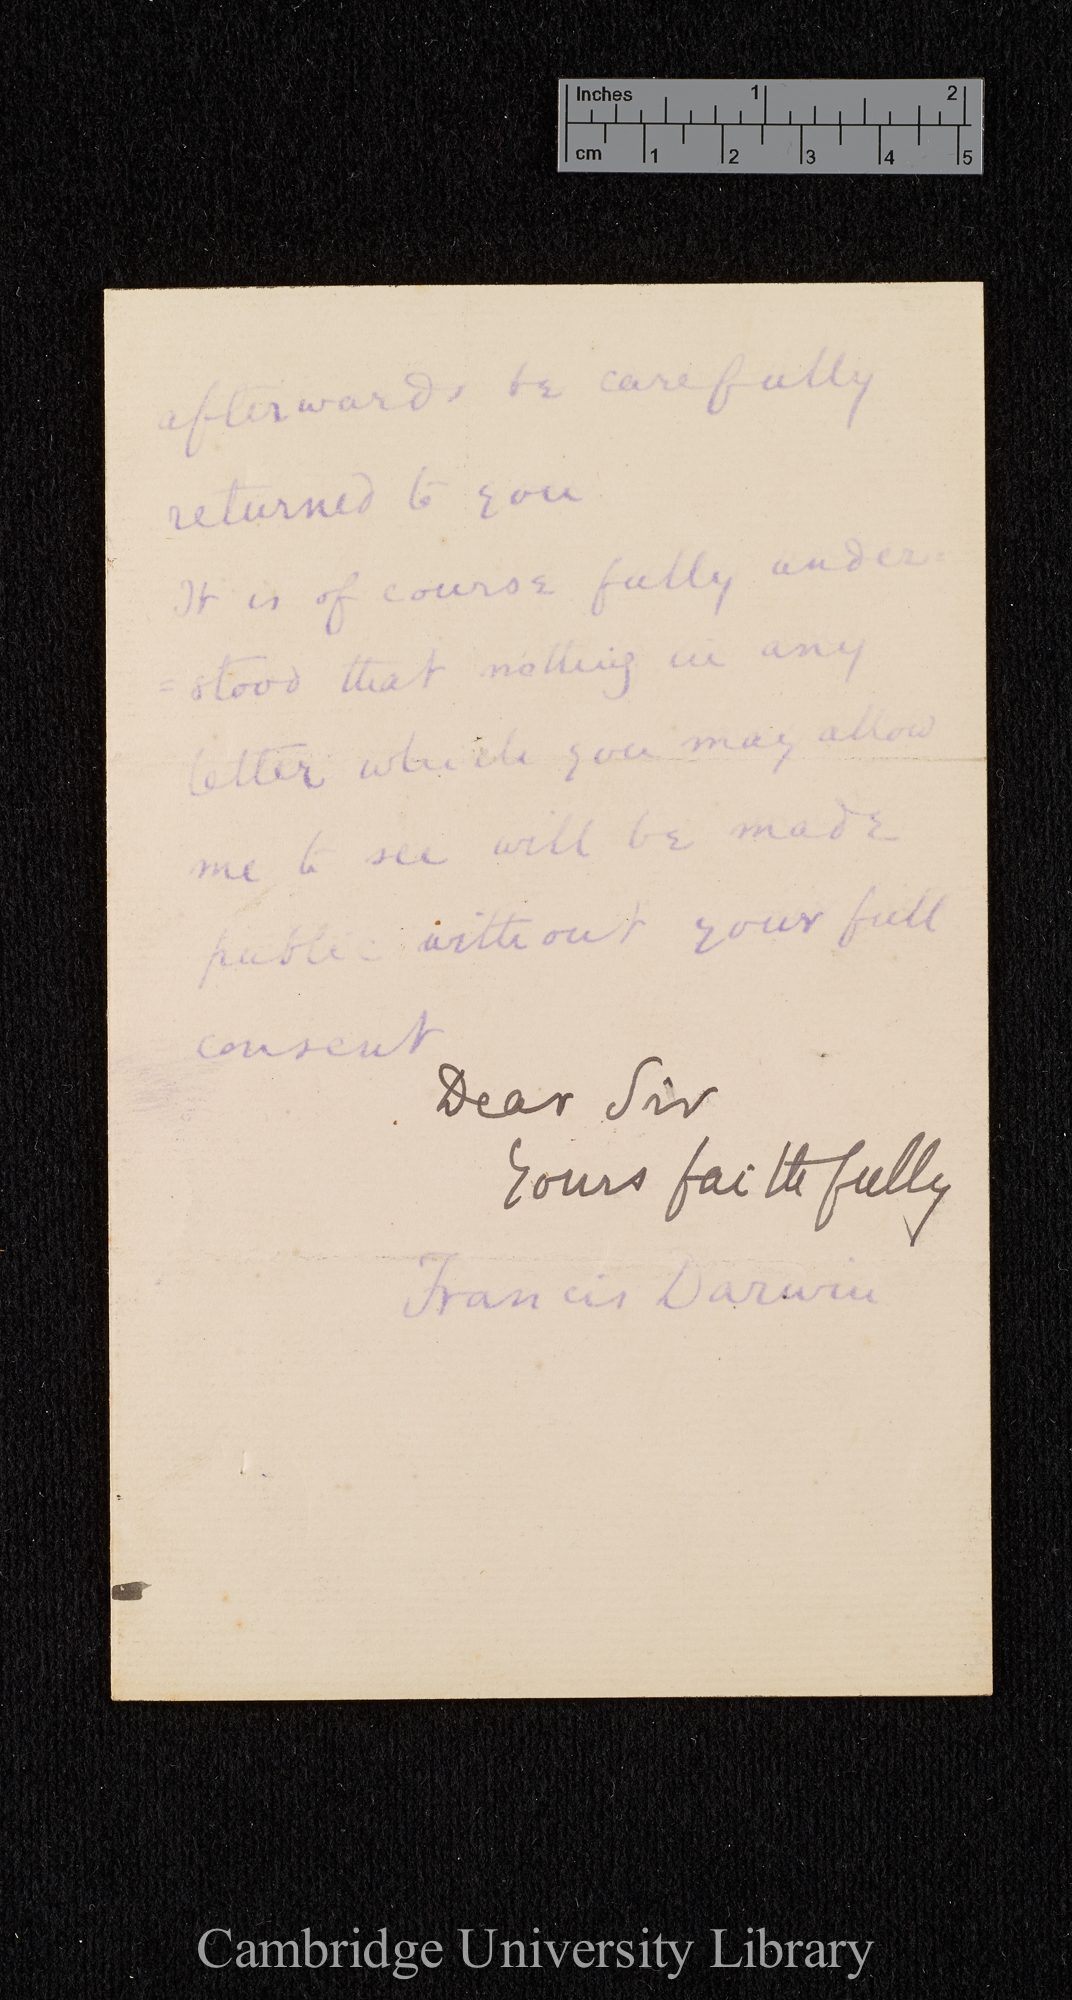 Inches 1 2
cm 1 2 3 4 5
afterwards be carefully
returned to you
It is of course fully under=
=stood that nothing in any
letter which you may allow
me to see will be made
public without your full
consent
Dear Sir
Yours faithfully
Francis Darwin
Cambridge University Library